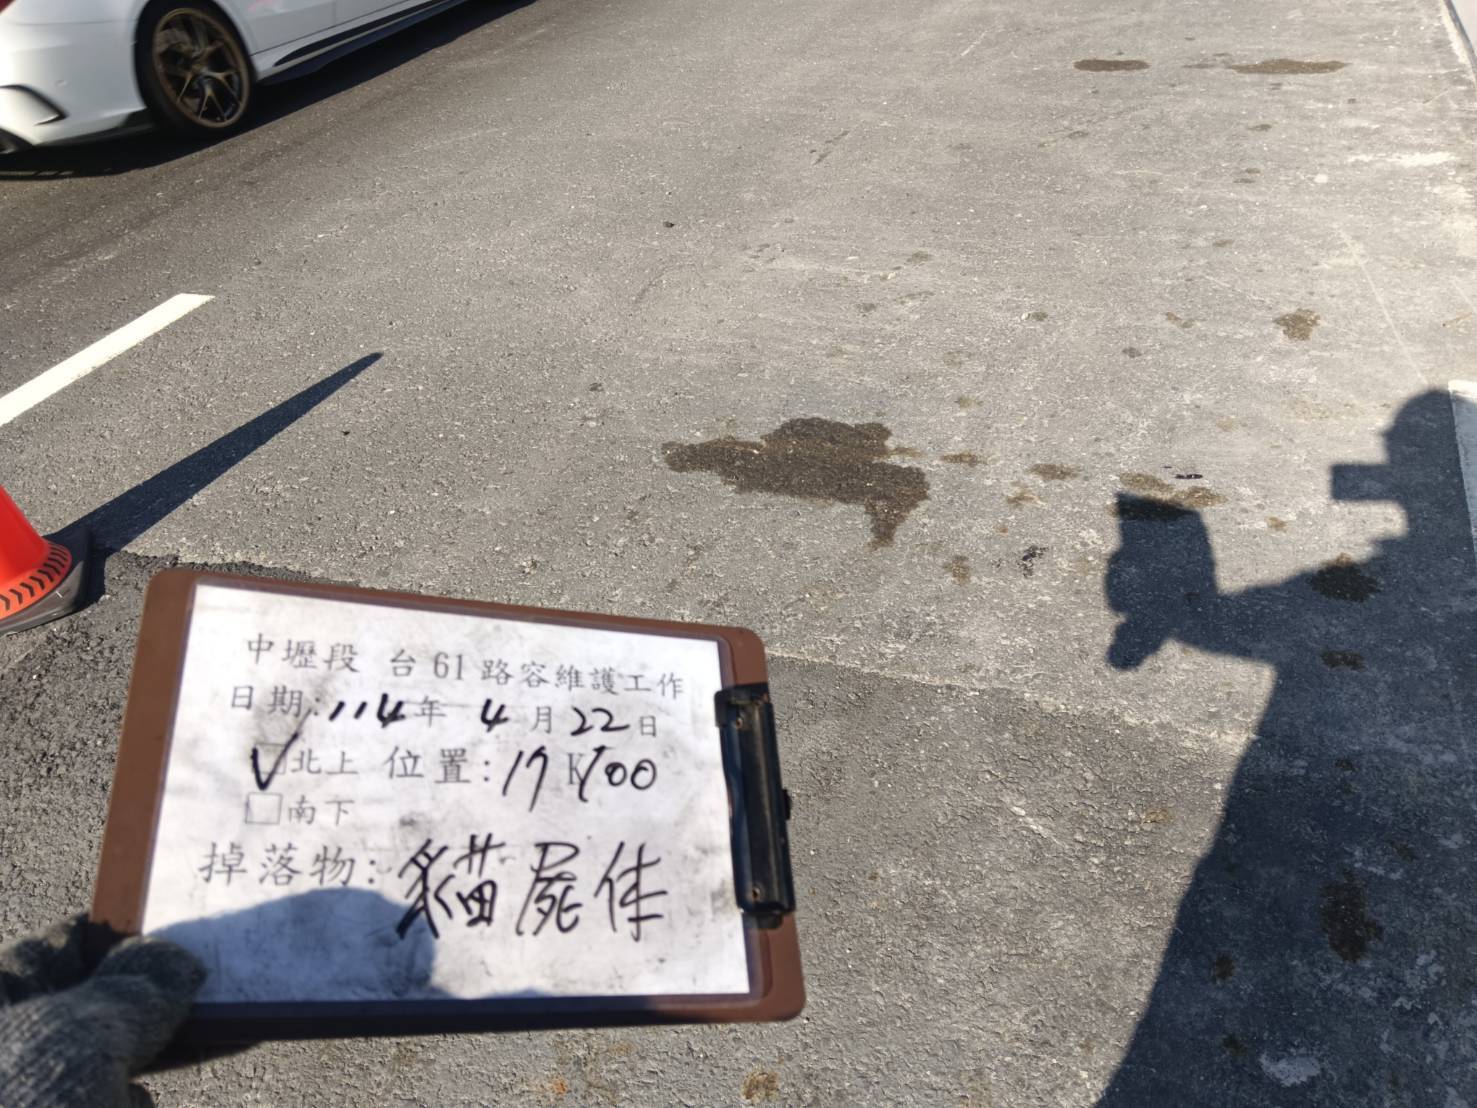 中壢段 台61路容維護工作
日期:114年 4月22日
北上 位置:17K700
南下
掉落物:貓屍体